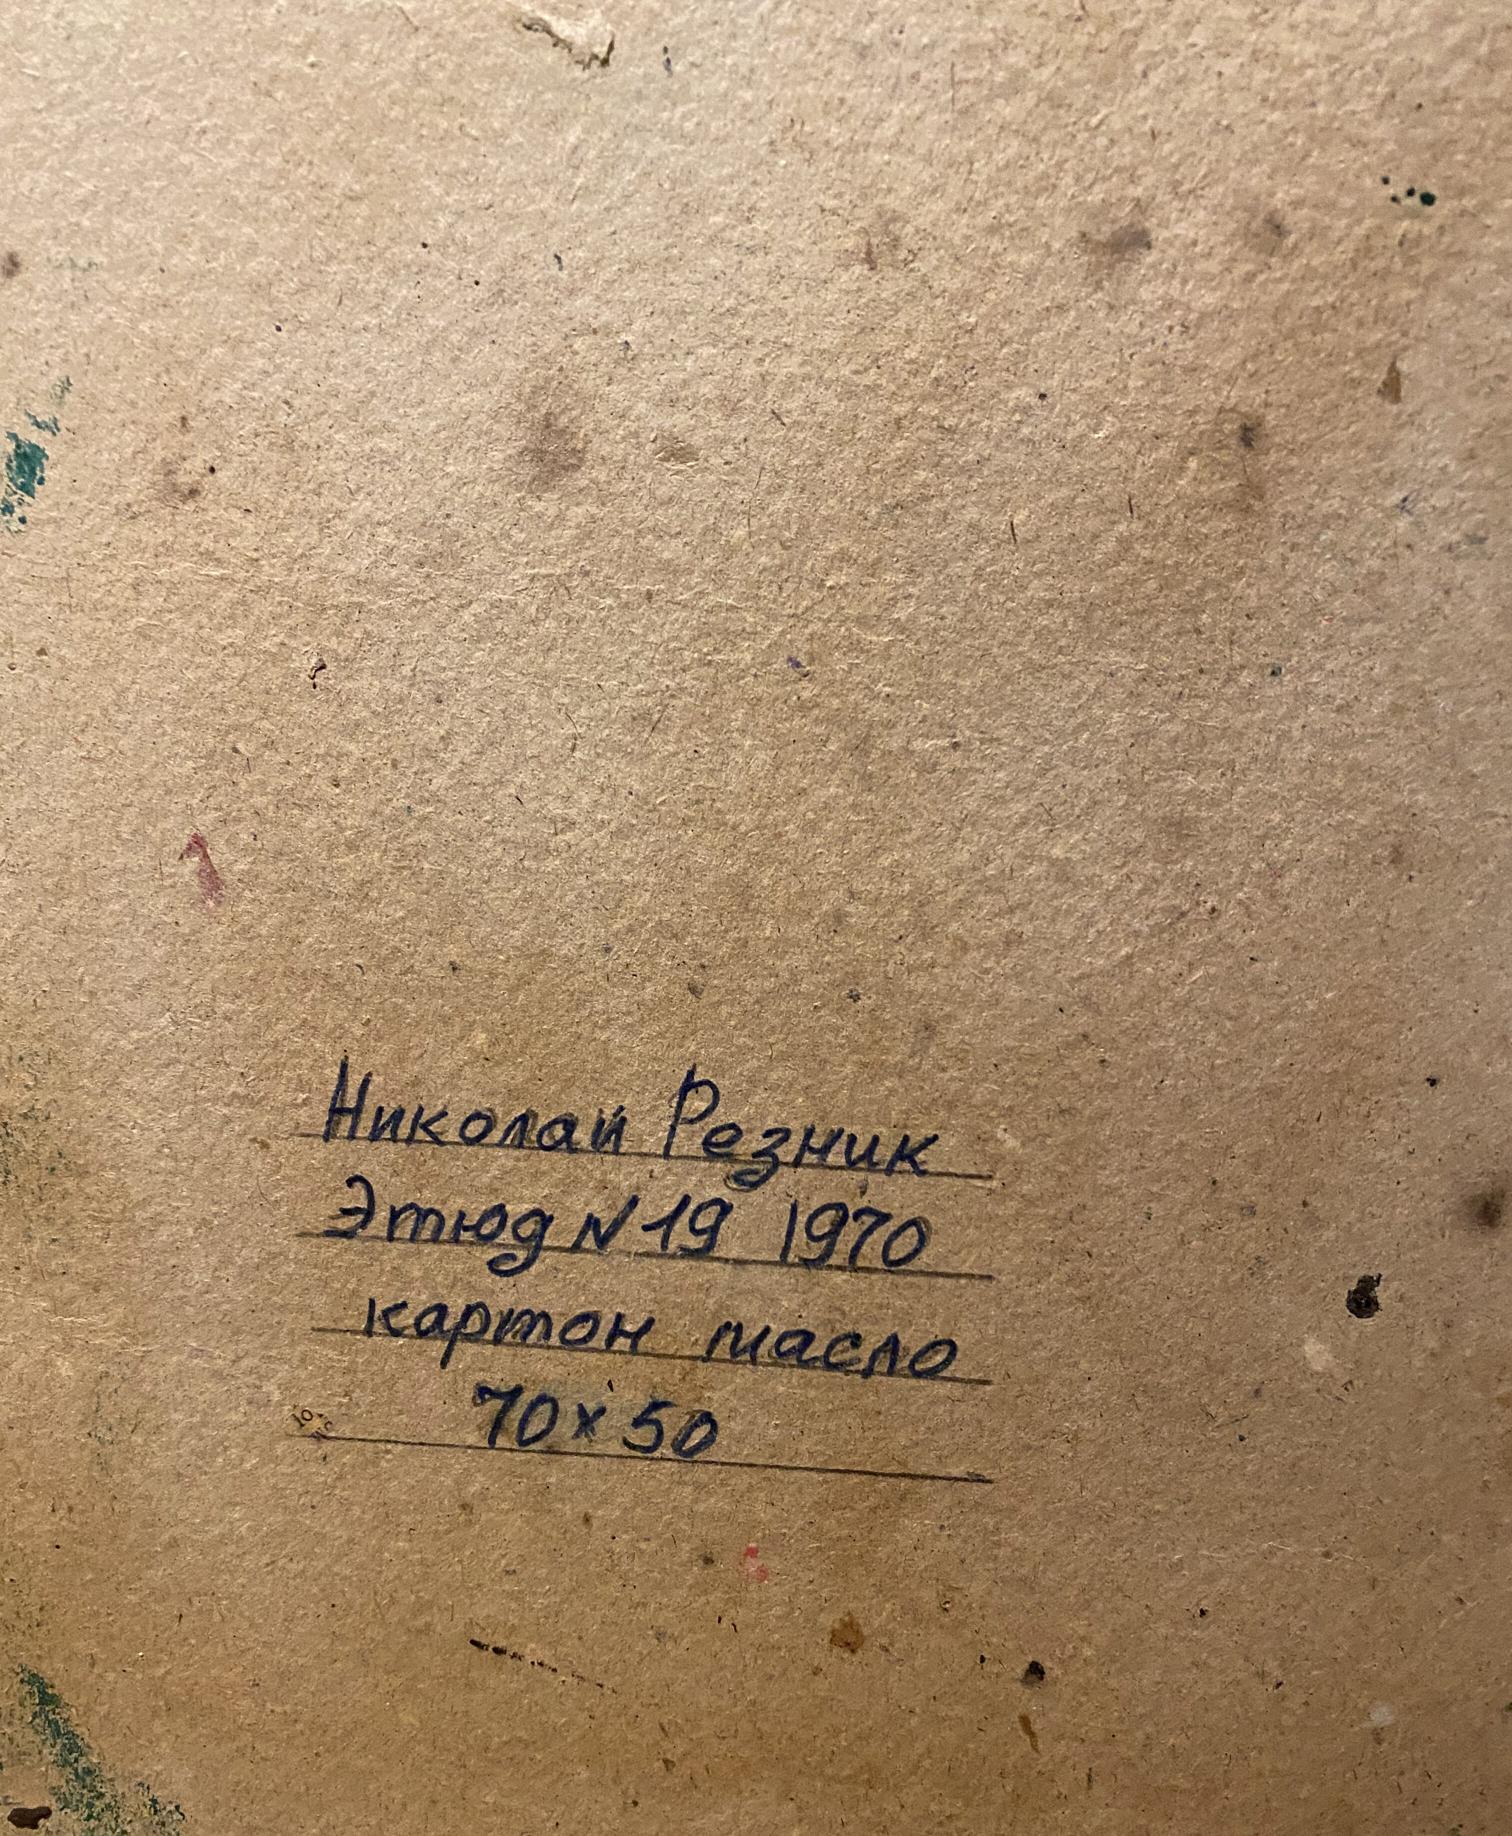 Николай Резник
Этюд N 19 1970
картон масло
70 x 50